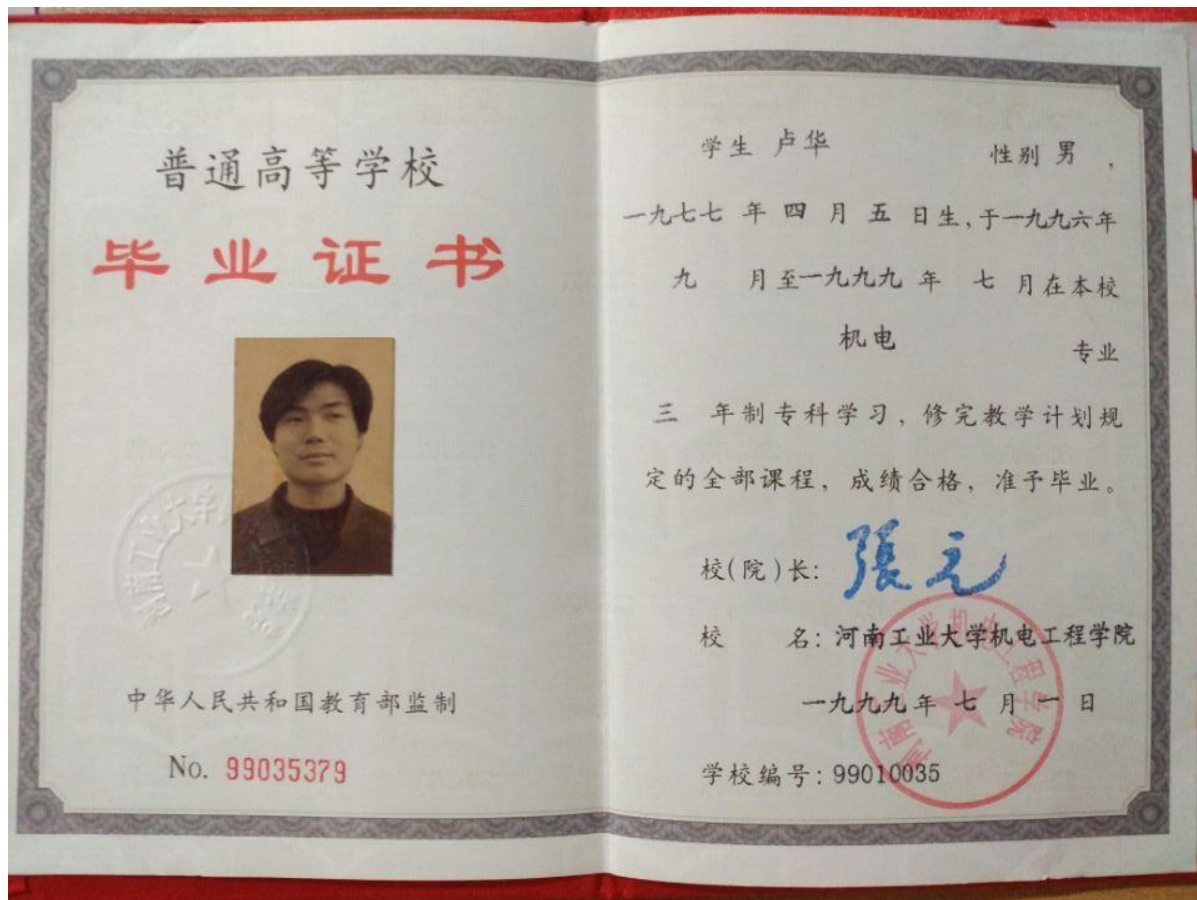 普通高等学校
毕业证书
中华人民共和国教育部监制
No. 99035379
学生 卢华 性别 男,
一九七七 年 四 月 五 日生,于一九九六年
九 月至一九九九 年 七 月在本校
机电 专业
三 年制专科学习,修完教学计划规
定的全部课程,成绩合格,准予毕业。
校(院)长: 張元
校 名: 河南工业大学机电工程学院
一九九九年 七 月 一 日
学校编号: 99010035
河南工业大学机电工程学院